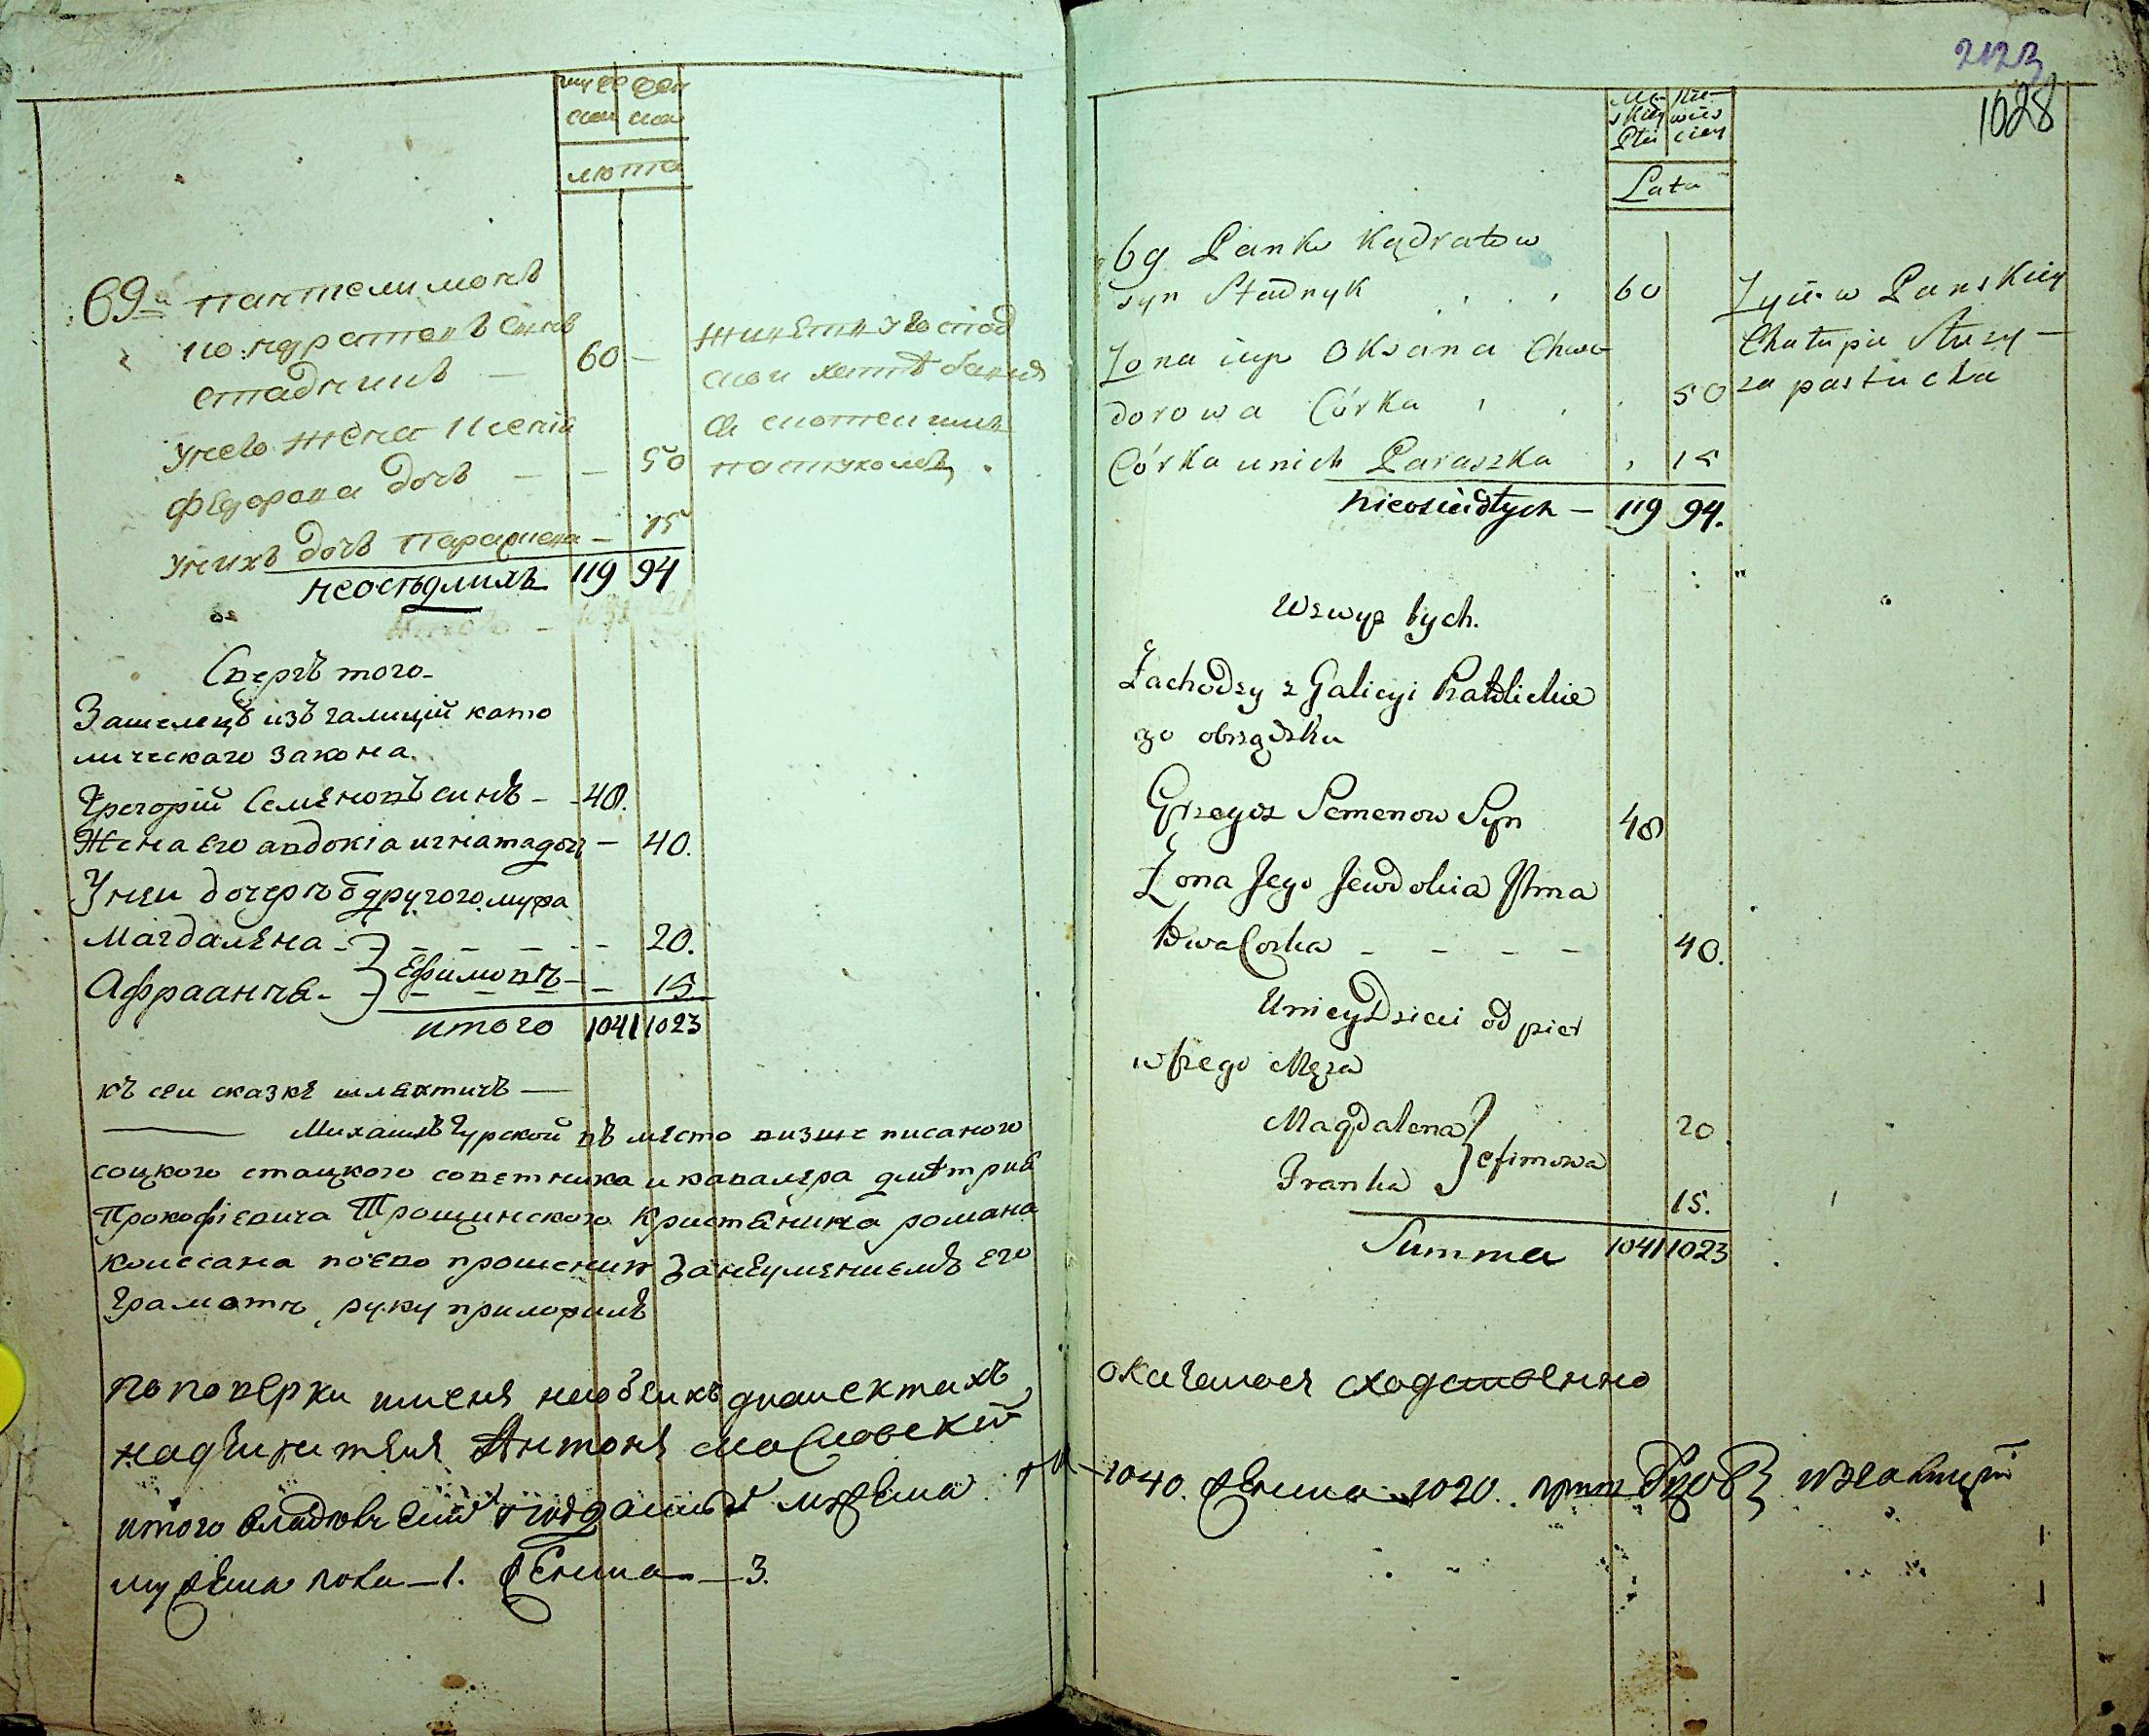 муже жен
ска ска
люта
69й пантелимонъ
кондратевъ синъ
стадникъ — 60 —
живетъ у господ
ской хатѣ
унего жена Ксенія
федорова дочь — — 50
пастухомъ
унихъ дочь Парасцева — 15
неосѣдлихъ 119 94
Сверхъ того
Зашелецъ изъ галиціи като
лическаго закона
Григорій Семеновъ синъ - - 40.
Жена его авдокіа игната доч — 40.
Унеи дочери ѿ другого мужа
Магдалена - - - - - 20.
Ефимовы
Афраанна - - - - 15
итого 1041 1023
къ сеи сказкѣ шляхтичъ —
Михаилъ Гурской въ место више писаного
соцкого стацкого советника и кавалера дмѣтрия
Прокофіевича Трощинского Кристянина романа
колесана по ево прошению Занеумениемъ его
Грамотѣ, руку приложилъ
по поверки имения на обеихъ диалектахъ
надзиратель Антонъ
итого мужеска
мужеска пола — 1. женска — 3.
2123
1028
Mę- Nie-
skiey wies
Płci ciey
Lata
69 Panko Kądratow
syn Stadnyk . . . 60
Zyie w Panskiey
Chałupie Słuzy —
za pastucha
Zona iego Oksana Chwe
dorowa Córka . . . 50
Córka unich Paraszka , 15
nieosiadłych — 119 94.
Wzwyz tych.
Zachodzy z Galicyi Katolickie
go obrządku
Grzegoz Semenow Syn 40
Zona Jego Jewdokia Ihna
towa Corka - - - - 40.
Uniey Dzieci od pier
wszego Męza
Magdalena 20
efimowa
Franka 15.
Summa 1041 1023
оказалося сходственно
1040. женска 1020.